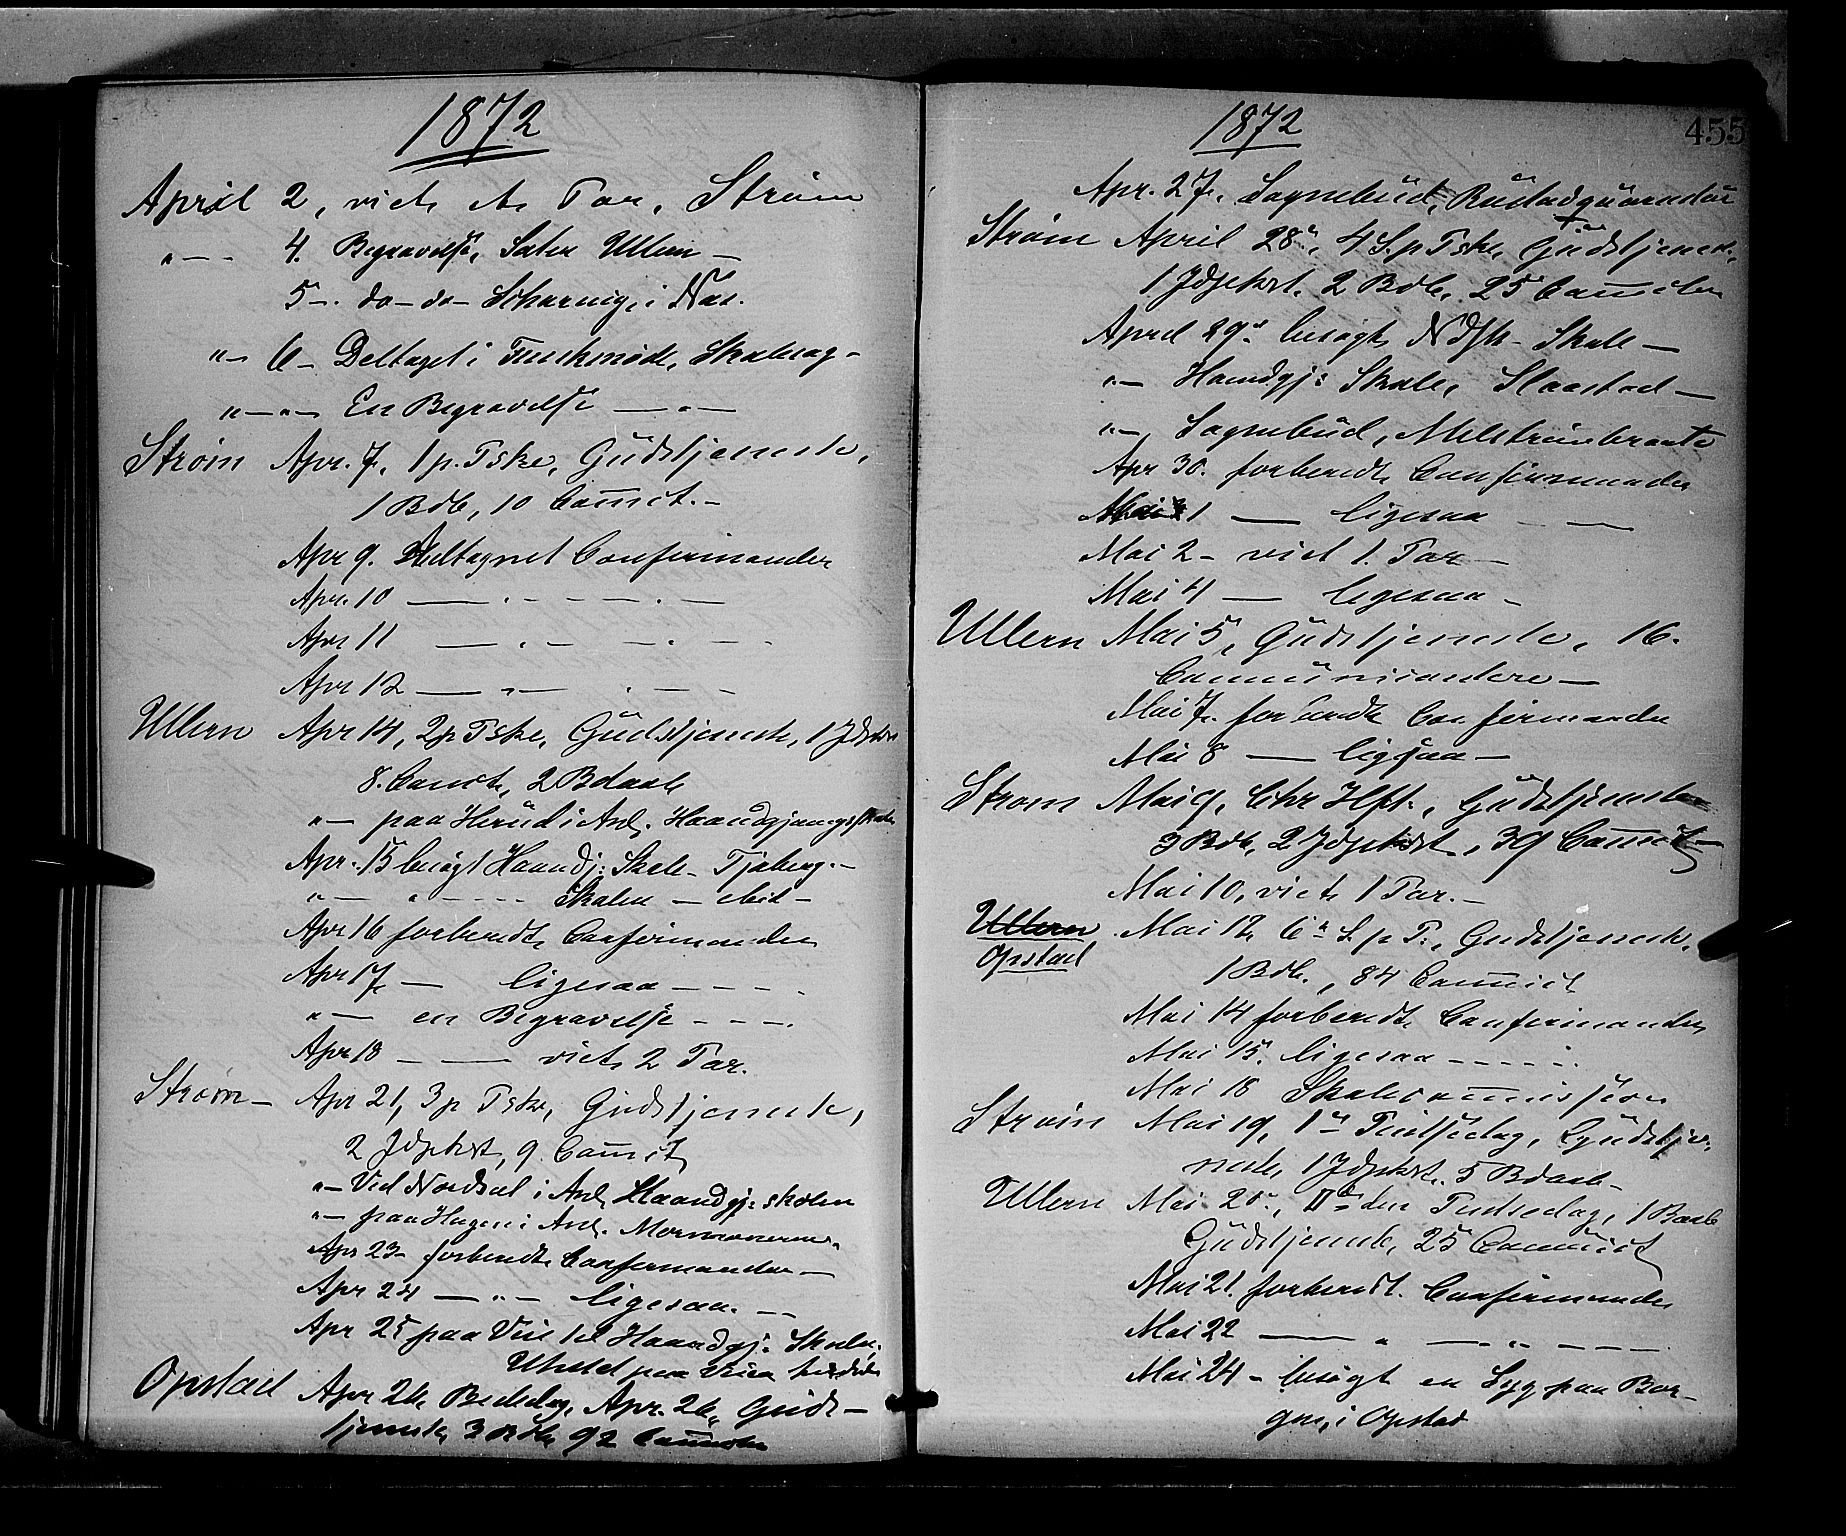 1872
April 2, viet et Par, Strøm
"-- 4. Begravelse, Ullern -
5-. do-do- i Næs.
"- 6- Deltaget i
"-"- En Begravelse - " -
Strøm Apr. 7, 1 p. Pske, Gudstjeneste,
1 Bdb, 10 Com̅ct. -
Apr 9. Modtaget Confirmander
Apr. 10 — . - - - . - -
Apr 11 — . - - . - -
Apr 12 — " - . - -
Ullern Apr 14, 2 p Pske, Gudstjeneste, 1 Jdpkst
8. Comct, 2 Bdaab
"- paa Herud i Anl. Haandgjerningsskolen
Apr. 15 besøgt Haandj: Skole - Tjaberg. -
"- " - - - - Skolen - ibid -
Apr 16 forberedt Confirmander
Apr 17 — ligesaa - - - -
"- en Begravelse - - - .
Apr 18 - — viet 2 Par.
Strøm - Apr 21, 3 p Pske, Gudstjeneste,
2 Jdpkst, 9. Com̅ct
"- Ved Nordset i Anl Haandgj: skolen
"- paa Hagen i Anl. Mormonerne
Apr 23- forberedt Confirmander -
Apr 24 — " - ligesaa. - -
Apr 25 paa Veie til Haandgj: Skolen,
Uheld paa Veien
Opstad Apr 26, Bededag, Apr. 26, Guds-
tjeneste, 3 Bdb, 92
1872
455
Apr. 27. Sognebud,
Strøm April 28, 4 S. p Pske, Gudstjeneste,
1 Jdpkst. 2 Bdb, 25
April 29 besøgt Skole -
"- Haandgj: Skole, Slaastad -
"- Sognebud,
Apr 30. forberedt Confirmander
Mai 1 — ligesaa - -
Mai 2 - viet 1. Par -
Mai 4 — ligesaa -
Ullern Mai 5, Gudstjeneste, 16.
Communicantere -
Mai 7. forberedt Confirmander
Mai 8 — ligesaa -
Strøm Mai 9, Chr Hft., Gudstjeneste
3 Bdb, 2 Jdpkst, 39 Com̅ct -
Mai 10, viet 1 Par. -
Ullern Mai 12, 6 S. p P., Gudstjeneste,
Opstad
1 Bdb., 84 Com̅ct
Mai 14 forberedt Confirmander
Mai 15. ligesaa - - - - -
Mai 18 Skolecom̅ission
Strøm Mai 19, 1 Pintsedag, Gudstje-
neste, 1 Jdpkst. 5 Bdaab -
Ullern Mai 20, II den Pintsedag, 1 Baab
Gudstjeneste, 25 Com̅ct
Mai 21 forberedt. Confirmander
Mai 22 — " - " - - -
Mai 24 - besøgt en Syg paa Bor-
gen, i Opstad